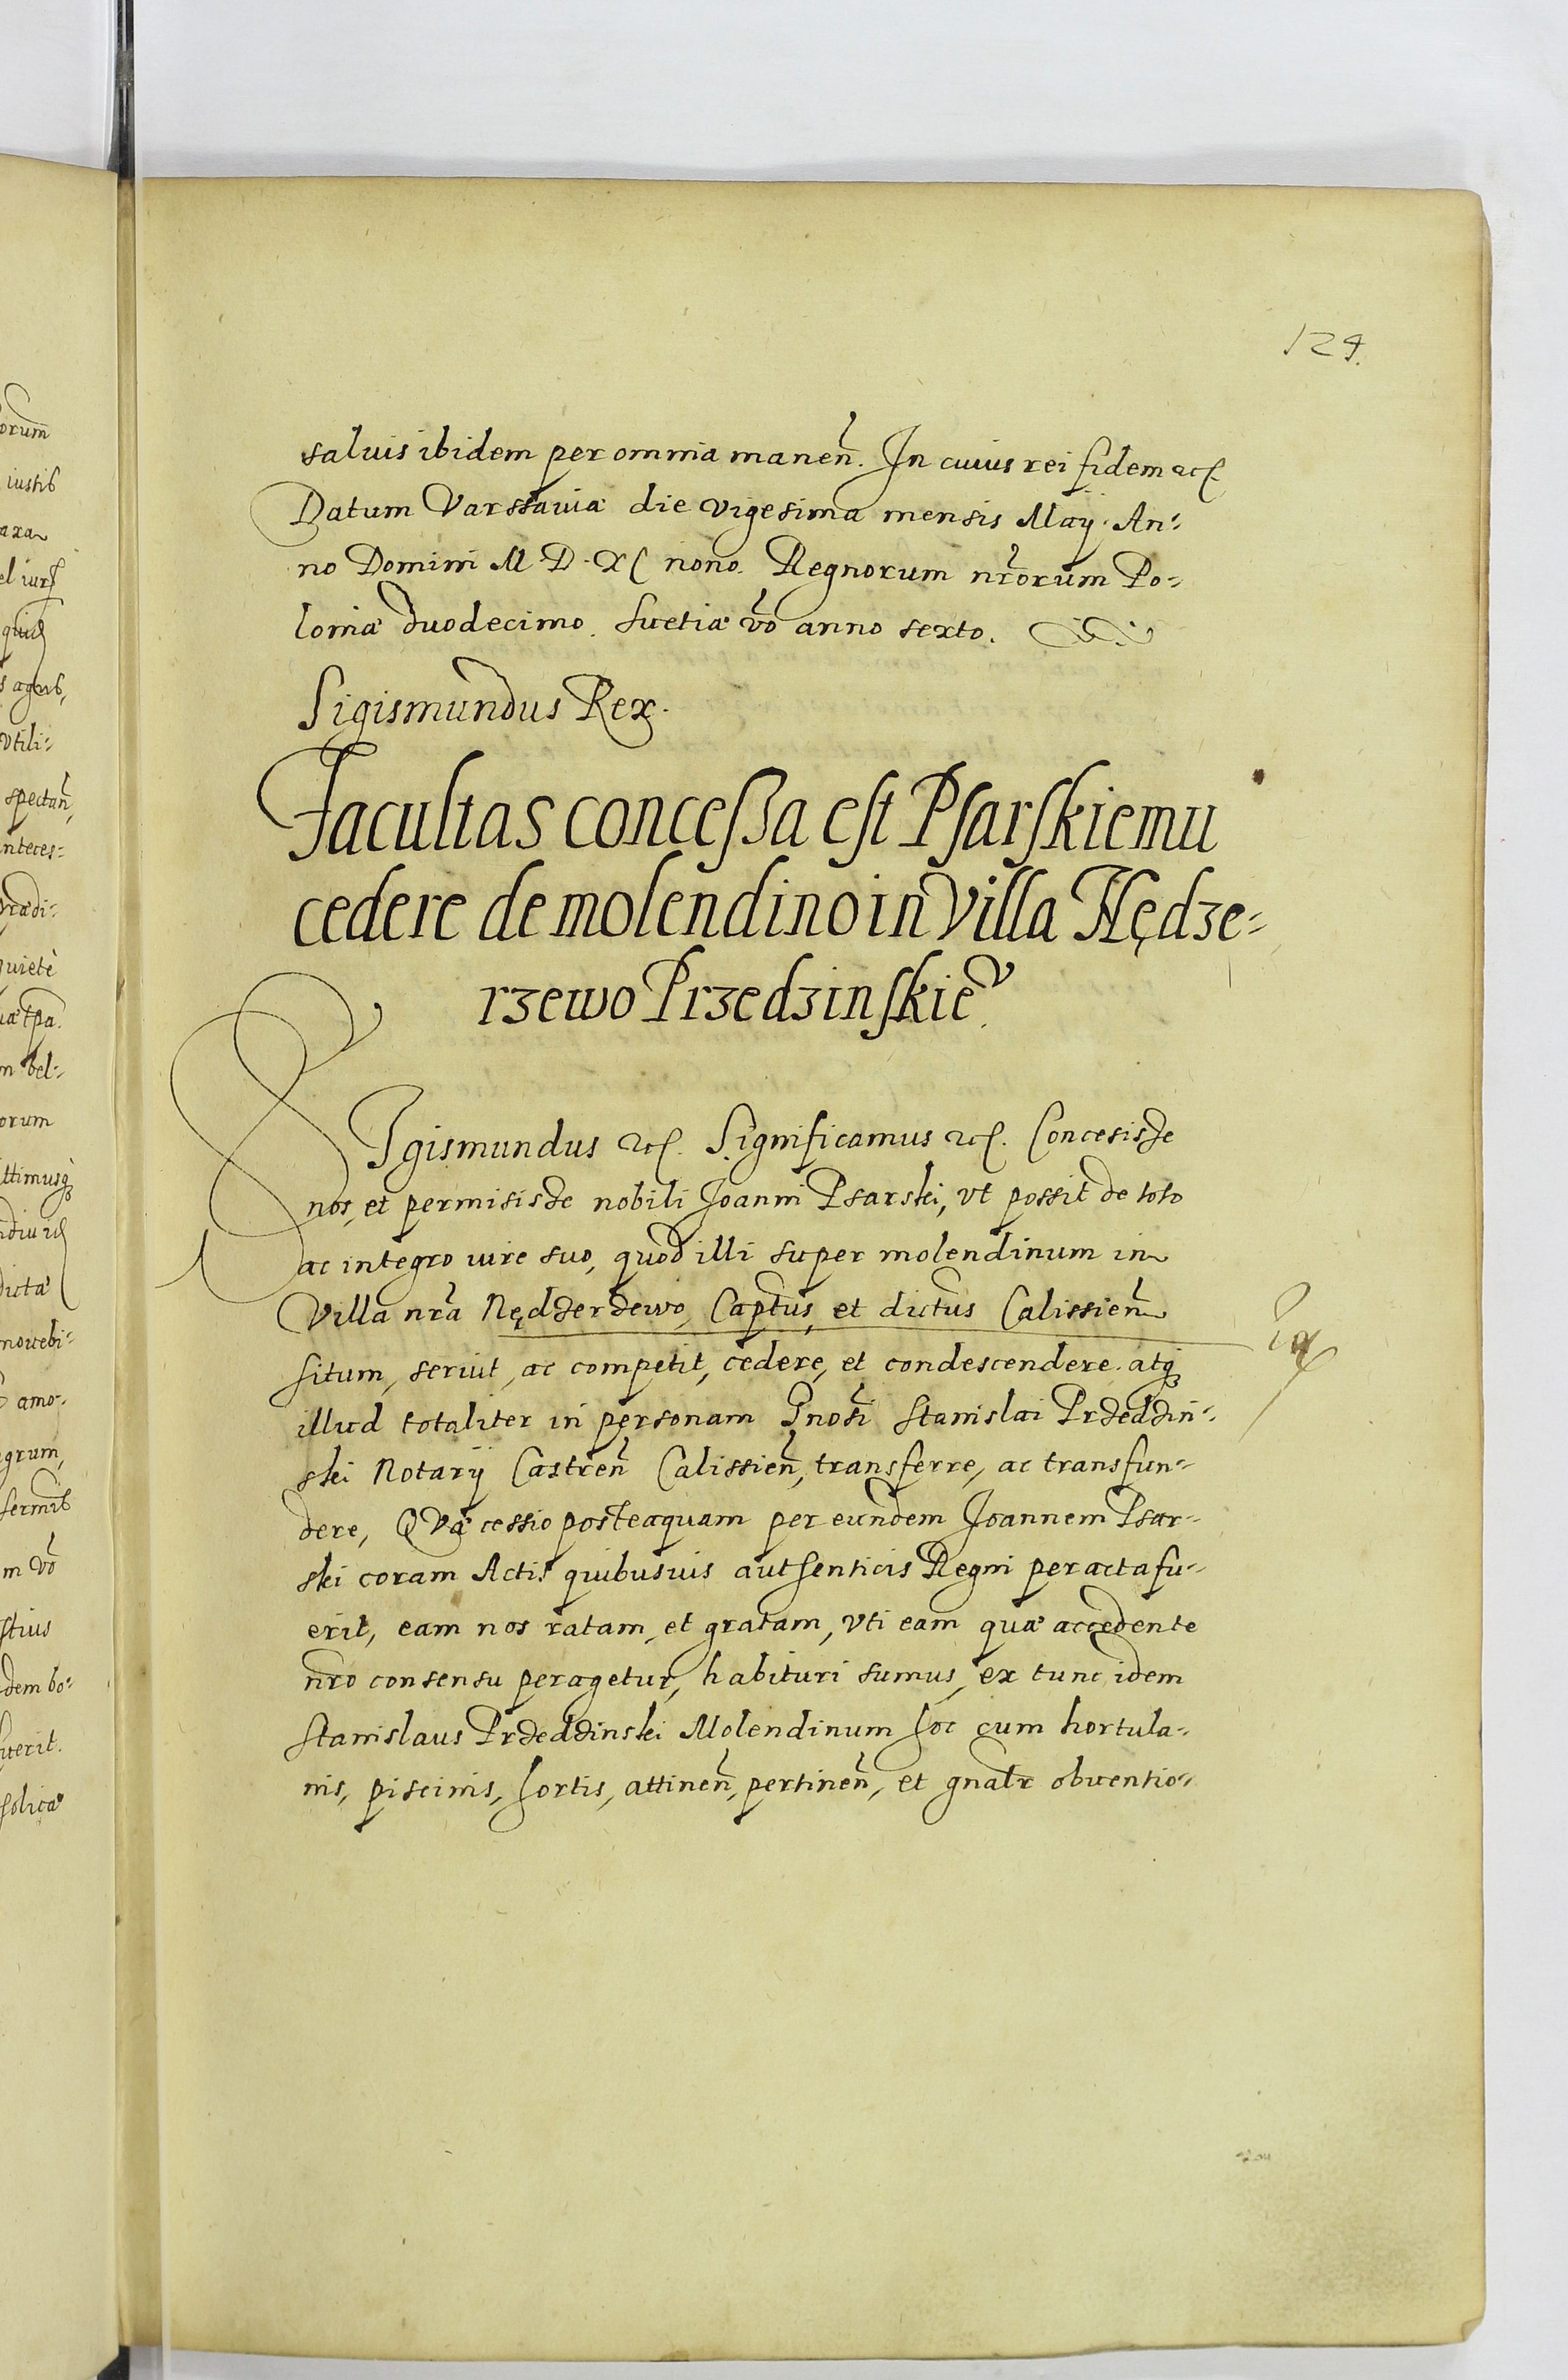 129.
saluis ibidem per omnia manen̄. In cuius rei fidem ⁊c̄.
Datum Varssauiæ die vigesima mensis Maÿ. An-
no Domini M. D. XC nono. Regnorum nr̄orum Po-
loniæ duodecimo. Suetiæ v̄o anno sexto.
Sigismundus Rex.
Facultas concessa est Psarskiemu
cedere de molendino in Villa Nędze-
rzewo Przedzinskieᵛ
SIgismundus ⁊c̄. Significamus ⁊c̄. Concesisse
nos, et permisisse nobili Joanni Psarski, vt possit de toto
ac integro iure suo, quod illi super molendinum in
Villa nr̄a Nędzerzewo, Captus, et dictus Calissien̄
situm, seruit, ac competit, cedere, et condescendere. atq;
illud totaliter in personam Gnosi Stanislai Przedzin-
ski Notarÿ Castren̄ Calissien̄, transferre, ac transfun-
dere, Quæ cessio posteaquam per eundem Joannem Psar-
ski coram Actis quibusuis authenticis Regni peracta fu-
erit, eam nos ratam, et gratam, vti eam quæ accedente
nr̄o consensu peragetur, habituri sumus, ex tunc idem
Stanislaus Przedzinski Molendinum hoc cum hortula-
nis, piscinis, hortis, attinen̄, pertinen̄, et gnalr obuentio-